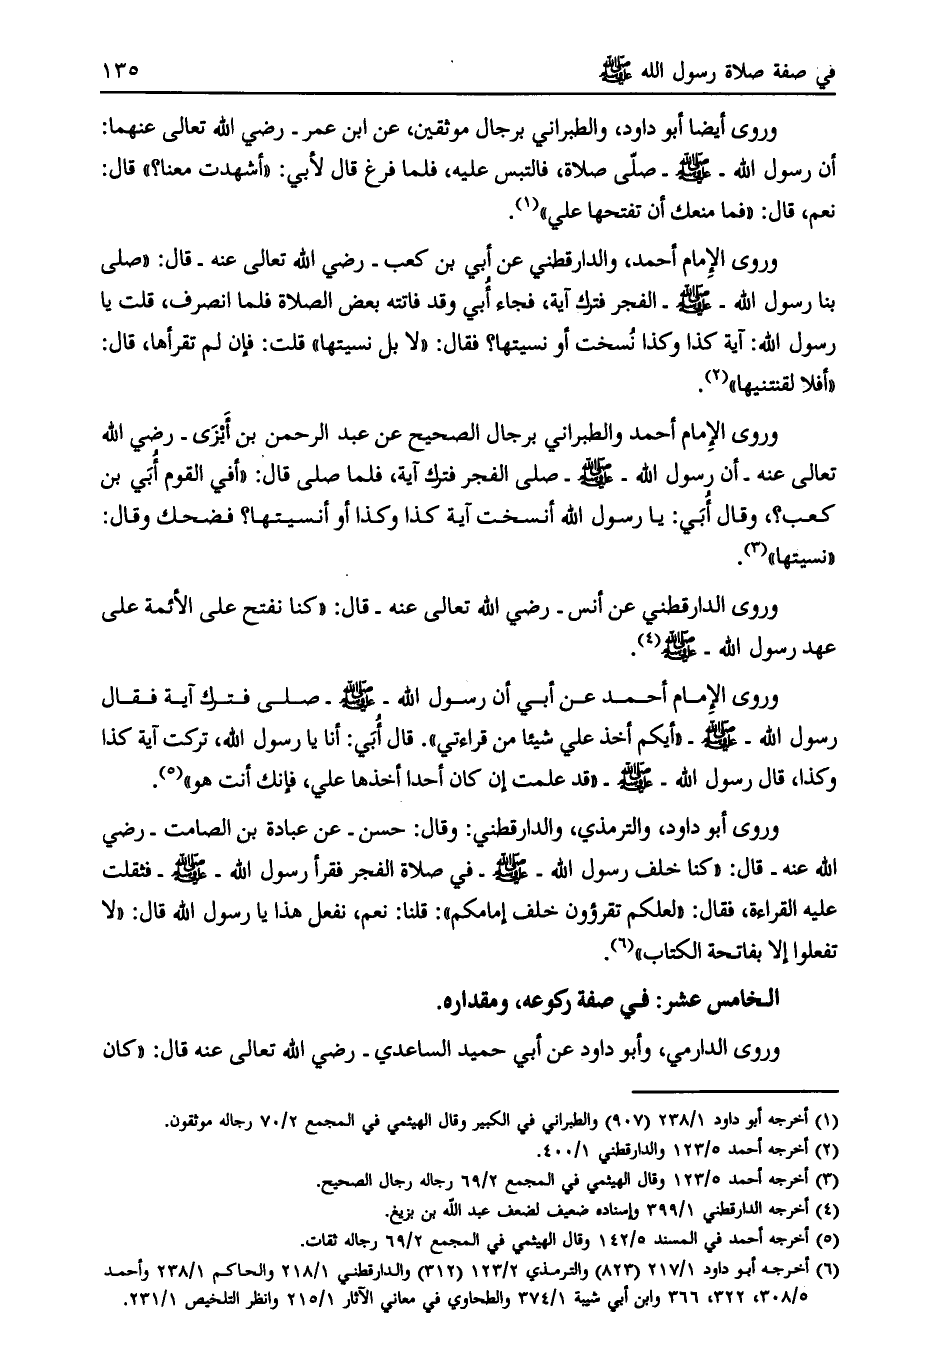 في صفة صلاة رسول الله ﷺ ١٣٥
وروى أيضا أبو داود، والطبراني برجال موثقين، عن ابن عمر ـ رضي الله تعالى عنهما:
أن رسول الله ـ ﷺ ـ صلّى صلاة، فالتبس عليه، فلما فرغ قال لأبي: «أشهدت معنا؟» قال:
نعم، قال: «فما منعك أن تفتحها علي»(١).
وروى الإمام أحمد، والدارقطني عن أبي بن كعب ـ رضي الله تعالى عنه ـ قال: «صلى
بنا رسول الله ـ ﷺ ـ الفجر فترك آية، فجاء أُبي وقد فاتته بعض الصلاة فلما انصرف، قلت يا
رسول الله: آية كذا وكذا نُسخت أو نسيتها؟ فقال: «لا بل نسيتها» قلت: فإن لم تقرأها، قال:
«أفلا لقنتنيها»(٢).
وروى الإمام أحمد والطبراني برجال الصحيح عن عبد الرحمن بن أَبْزَى ـ رضي الله
تعالى عنه ـ أن رسول الله ـ ﷺ ـ صلى الفجر فترك آية، فلما صلى قال: «أفي القوم أُبَي بن
كعب؟، وقال أُبَي: يا رسول الله أنسخت آية كذا وكذا أو أنسيتها؟ فضحك وقال:
«نسيتها»(٣).
وروى الدارقطني عن أنس ـ رضي الله تعالى عنه ـ قال: «كنا نفتح على الأئمة على
عهد رسول الله ـ ﷺ(٤).
وروى الإمام أحمد عن أبي أن رسول الله ـ ﷺ ـ صلى فترك آية فقال
رسول الله ـ ﷺ ـ «أيكم أخذ علي شيئا من قراءتي». قال أُبَي: أنا يا رسول الله، تركت آية كذا
وكذا، قال رسول الله ـ ﷺ ـ «قد علمت إن كان أحدا أخذها علي، فإنك أنت هو»(٥).
وروى أبو داود، والترمذي، والدارقطني: وقال: حسن ـ عن عبادة بن الصامت ـ رضي
الله عنه ـ قال: «كنا خلف رسول الله ـ ﷺ ـ في صلاة الفجر فقرأ رسول الله ـ ﷺ ـ فثقلت
عليه القراءة، فقال: «لعلكم تقرؤون خلف إمامكم»: قلنا: نعم، نفعل هذا يا رسول الله قال: «لا
تفعلوا إلا بفاتحة الكتاب»(٦).
الخامس عشر: في صفة ركوعه، ومقداره.
وروى الدارمي، وأبو داود عن أبي حميد الساعدي ـ رضي الله تعالى عنه قال: «كان
(١) أخرجه أبو داود ٢٣٨/١ (٩٠٧) والطبراني في الكبير وقال الهيثمي في المجمع ٧٠/٢ رجاله موثقون.
(٢) أخرجه أحمد ١٢٣/٥ والدارقطني ٤٠٠/١.
(٣) أخرجه أحمد ١٢٣/٥ وقال الهيثمي في المجمع ٦٩/٢ رجاله رجال الصحيح.
(٤) أخرجه الدارقطني ٣٩٩/١ وإسناده ضعيف لضعف عبد اللّه بن بزيغ.
(٥) أخرجه أحمد في المسند ١٤٢/٥ وقال الهيثمي في المجمع ٦٩/٢ رجاله ثقات.
(٦) أخرجه أبو داود ٢١٧/١ (٨٢٣) والترمذي ١٢٣/٢ (٣١٢) والدارقطني ٢١٨/١ والحاكم ٢٣٨/١ وأحمد
٣٠٨/٥، ٣٢٢، ٣٦٦ وابن أبي شيبة ٣٧٤/١ والطحاوي في معاني الآثار ٢١٥/١ وانظر التلخيص ٢٣١/١.